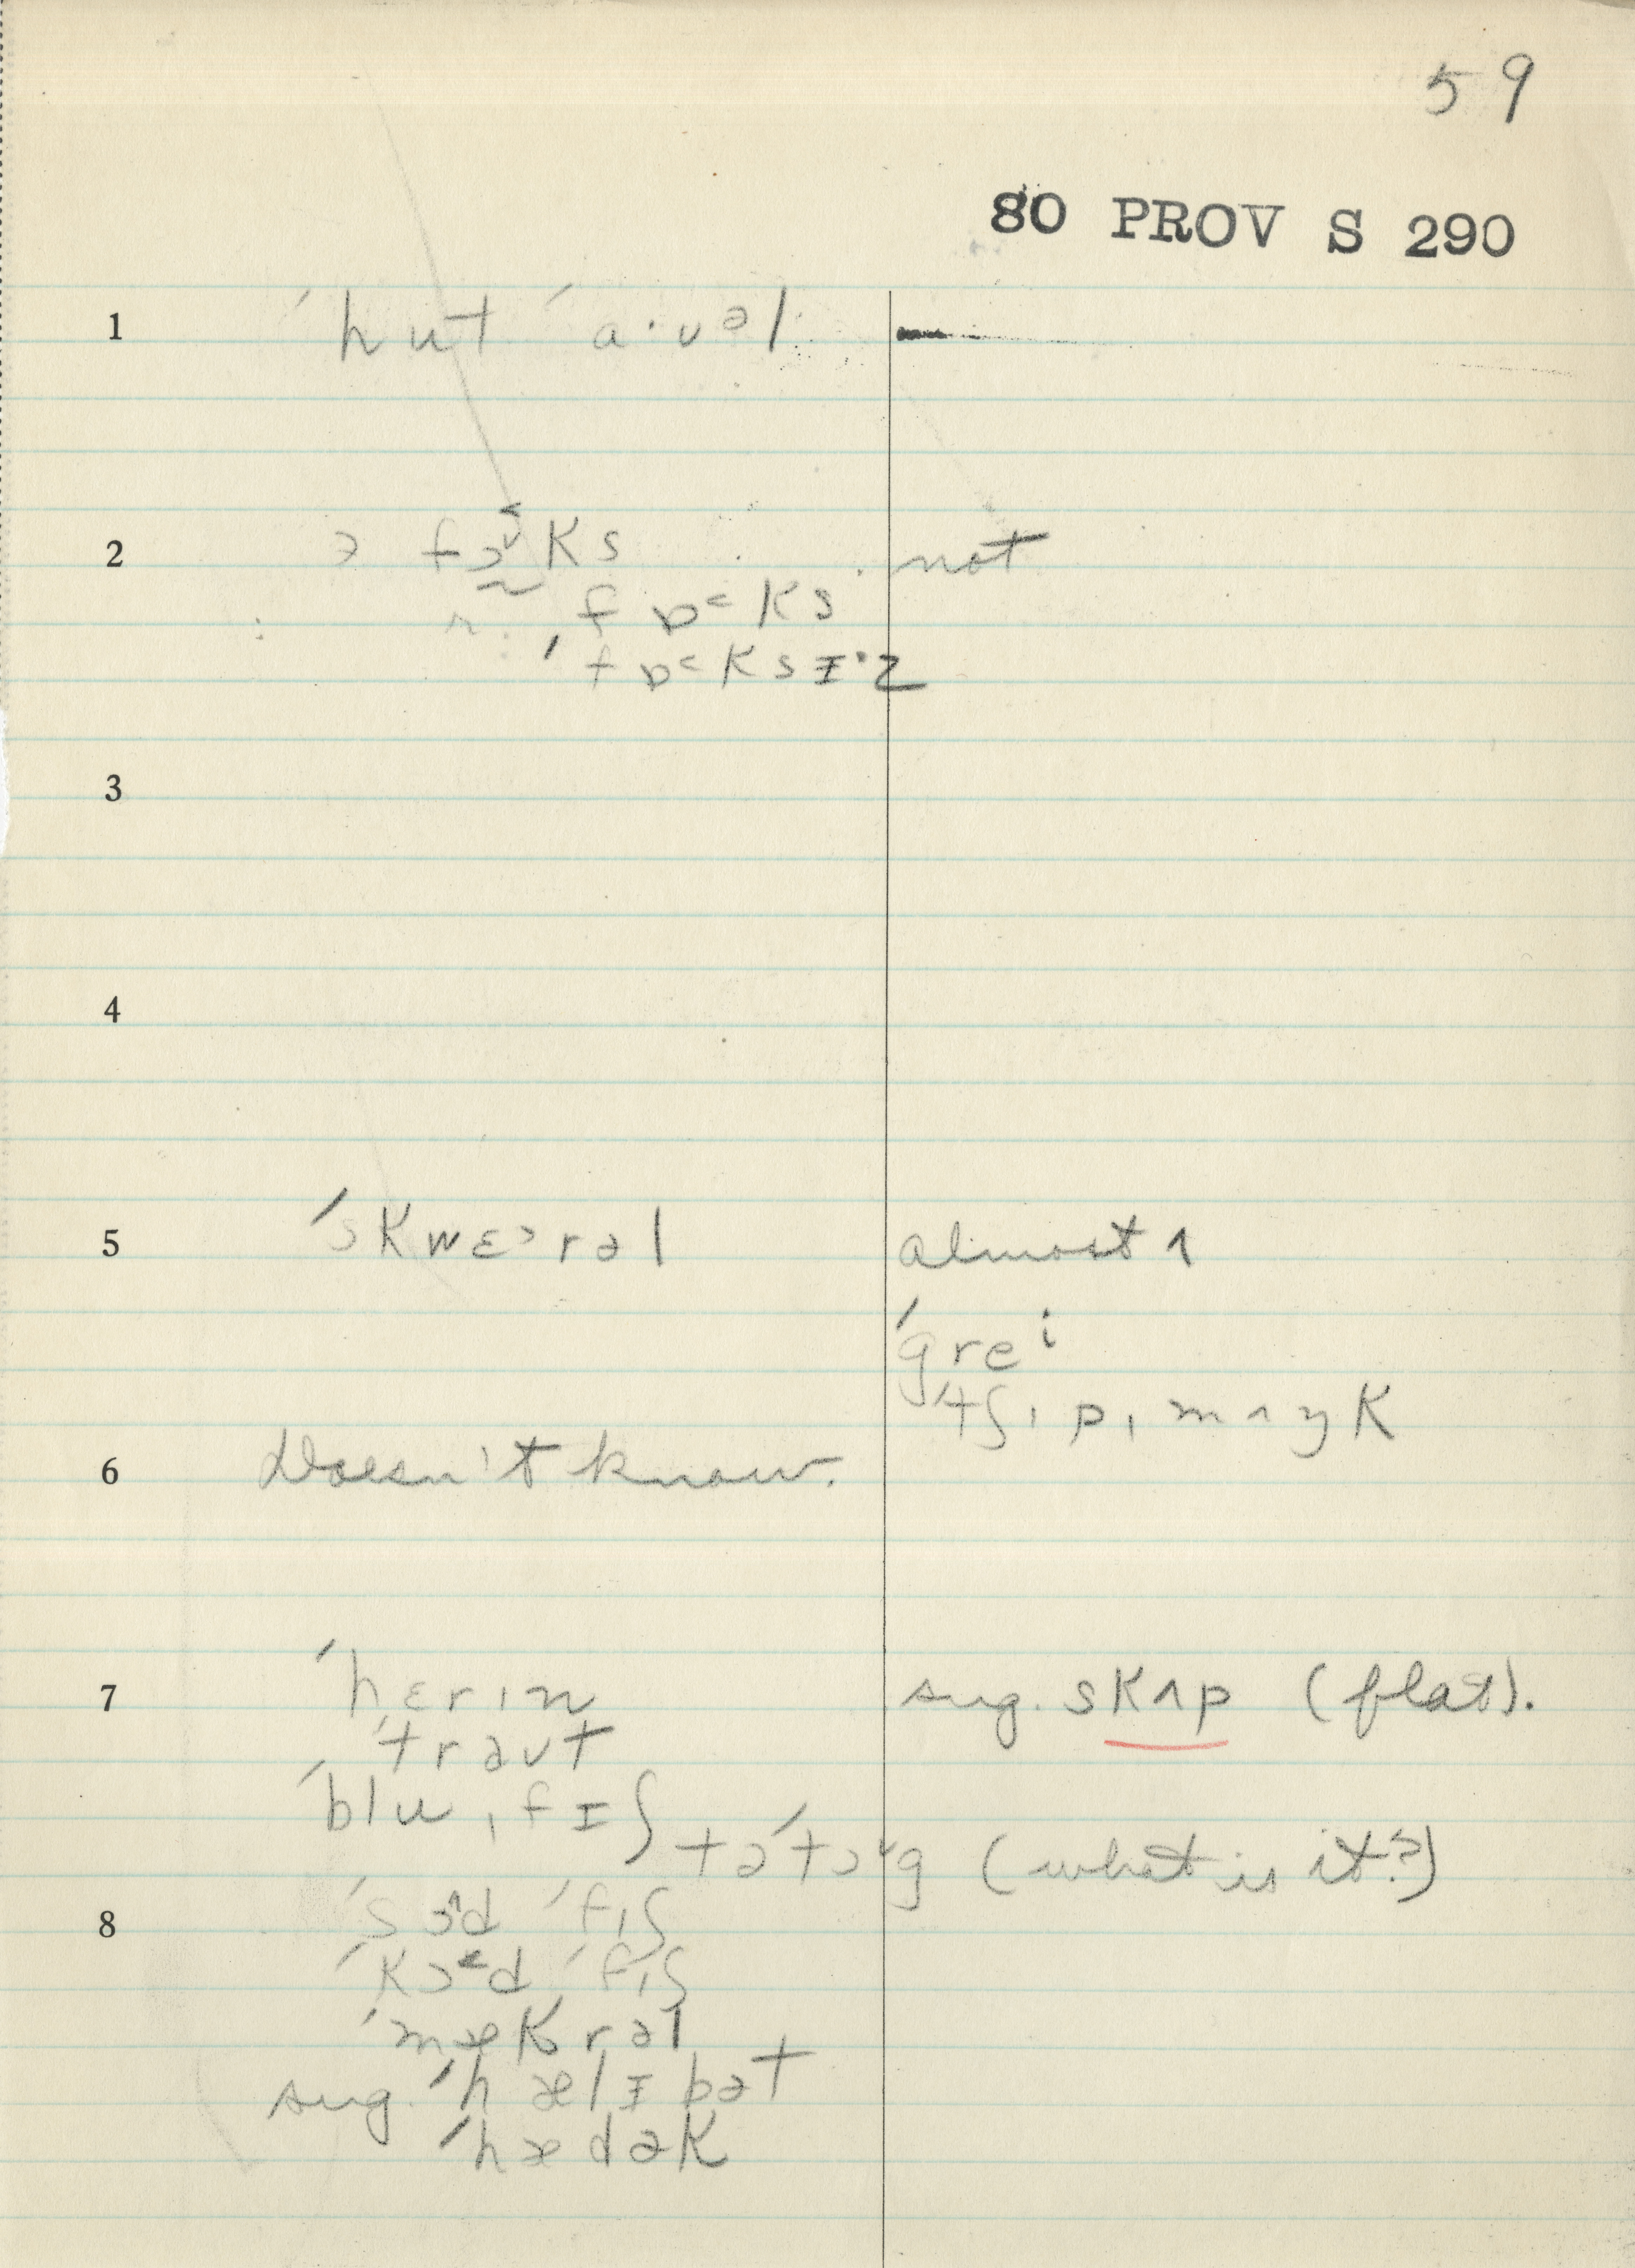 59
80 PROV S 290
1 ˈhut ˈa·ʋəl
2 ə fɔks not
fɒ˂ks
ˈfɒ˂ksɪ·z
3
4
5 ˈskwɛ˃rəl almost ʌ
ˈgreⁱ
ˈtʃɪpˌmʌŋk
6 Doesn't know.
7 ˈhɛrɪn sug. skʌp (flat).
ˈtrəʊt
ˈbluˌfɪʃ
təˈtɔg (what is it?)
8 ˈsɔ˄d ˈfɪʃ
ˈkɔ˂d ˈfɪʃ
ˈmækrəl
sug. ˈhælɪbət
ˈhædək